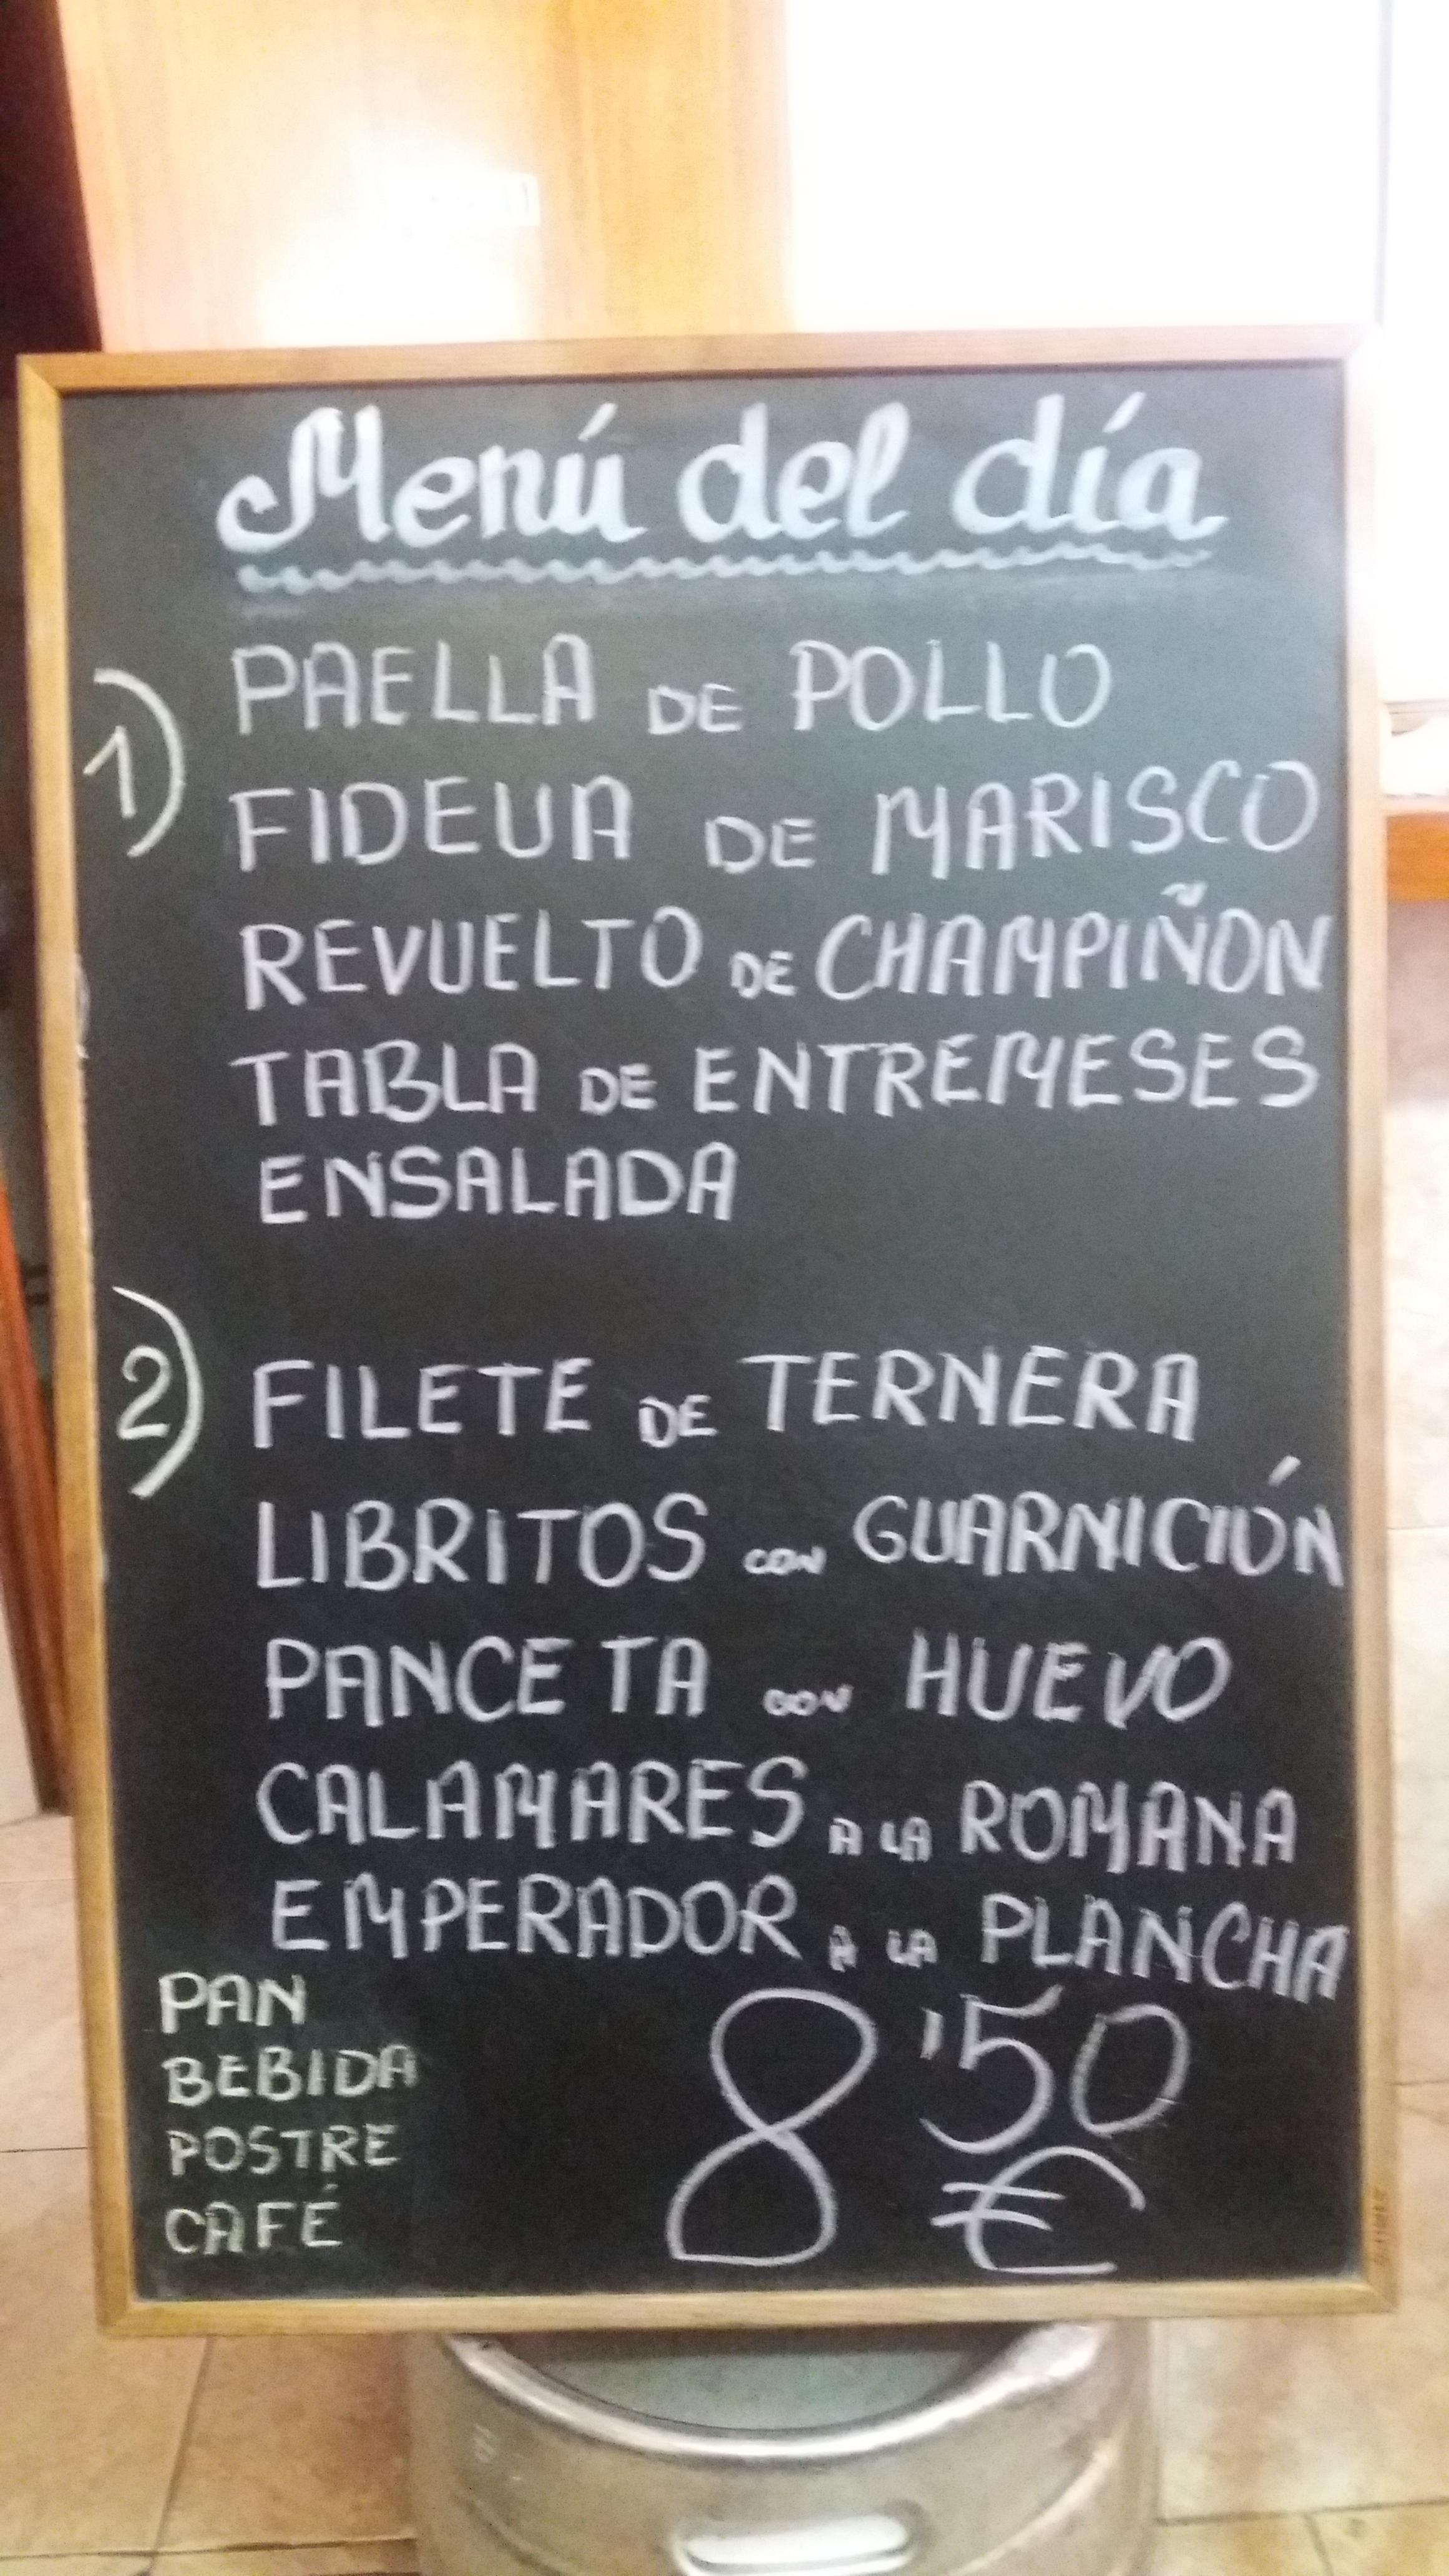 Menú del día
1) PAELLA DE POLLO
FIDEUA DE MARISCO
REVUELTO DE CHAMPIÑON
TABLA DE ENTREMESES
ENSALADA
2) FILETE DE TERNERA
LIBRITOS CON GUARNICIÓN
PANCETA CON HUEVO
CALAMARES A LA ROMANA
EMPERADOR A LA PLANCHA
PAN
BEBIDA
POSTRE
CAFÉ
8'50
€